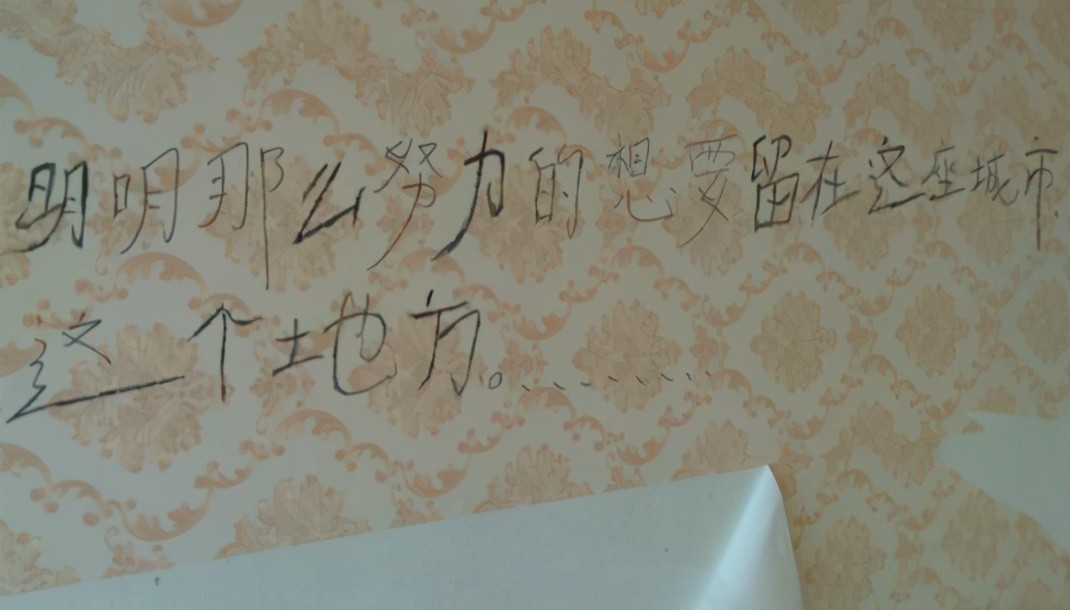 明明那么努力的想要留在这座城市.
这个土地方。.........